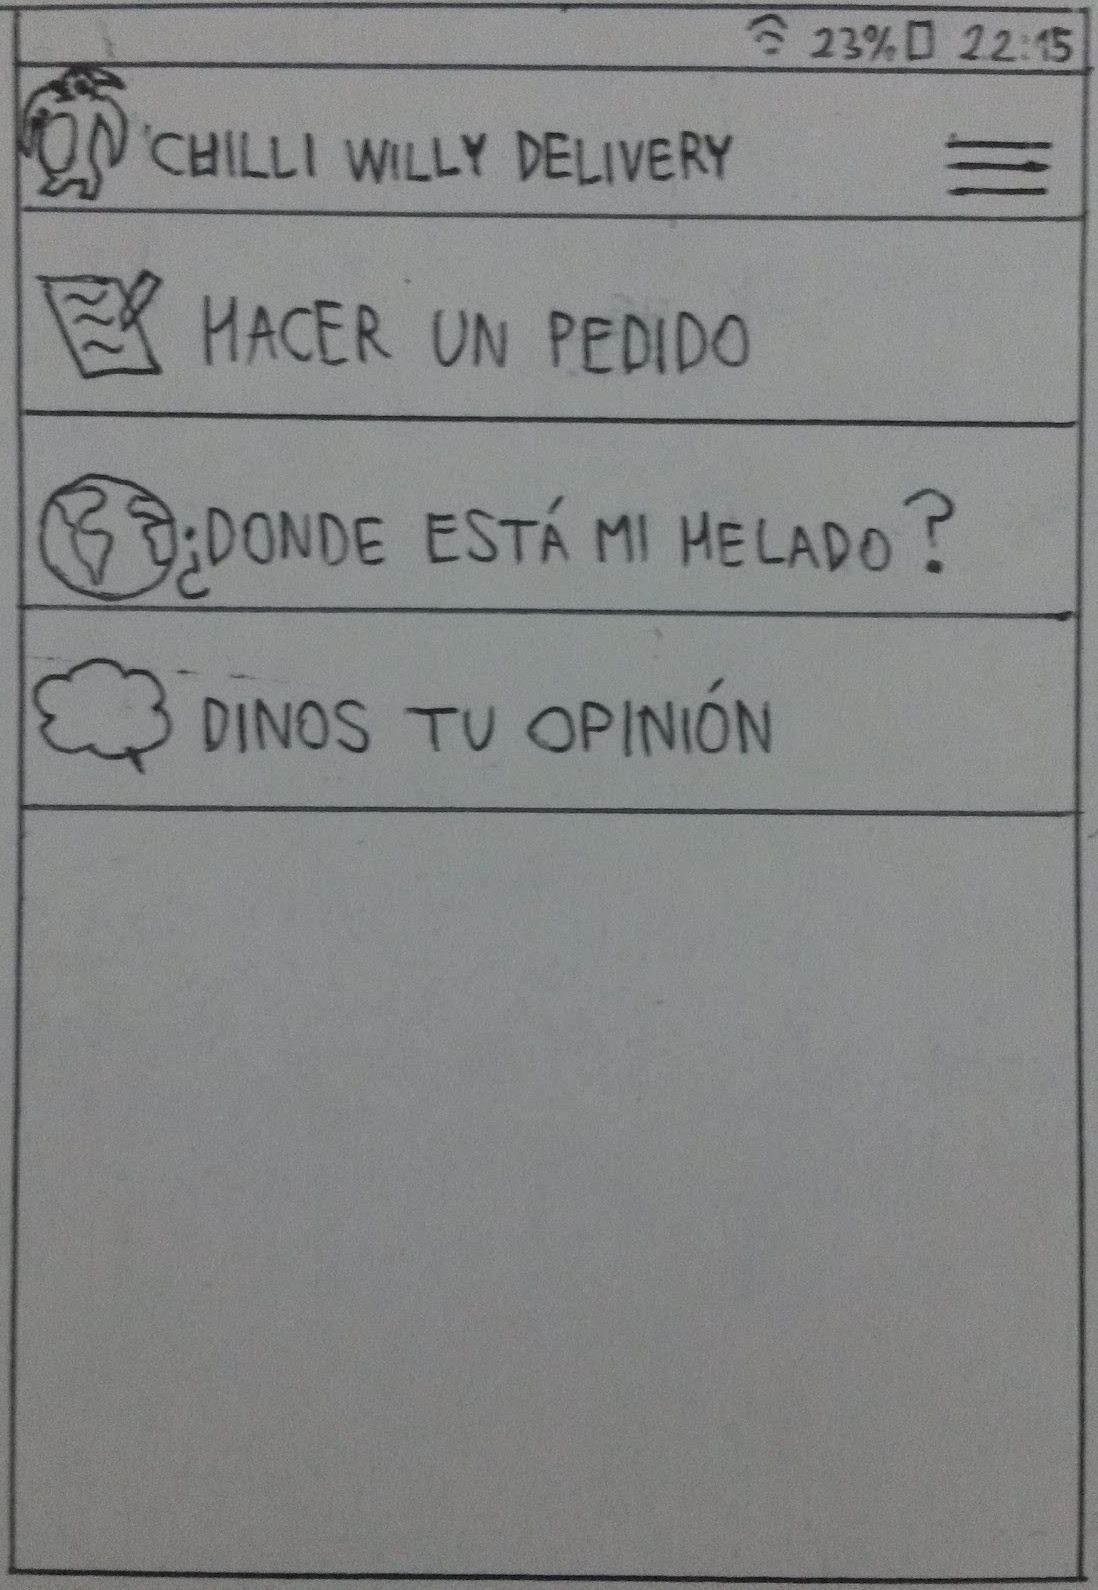 23% 22:15
CHILLI WILLY DELIVERY
HACER UN PEDIDO
¿DONDE ESTÁ MI HELADO?
DINOS TU OPINIÓN